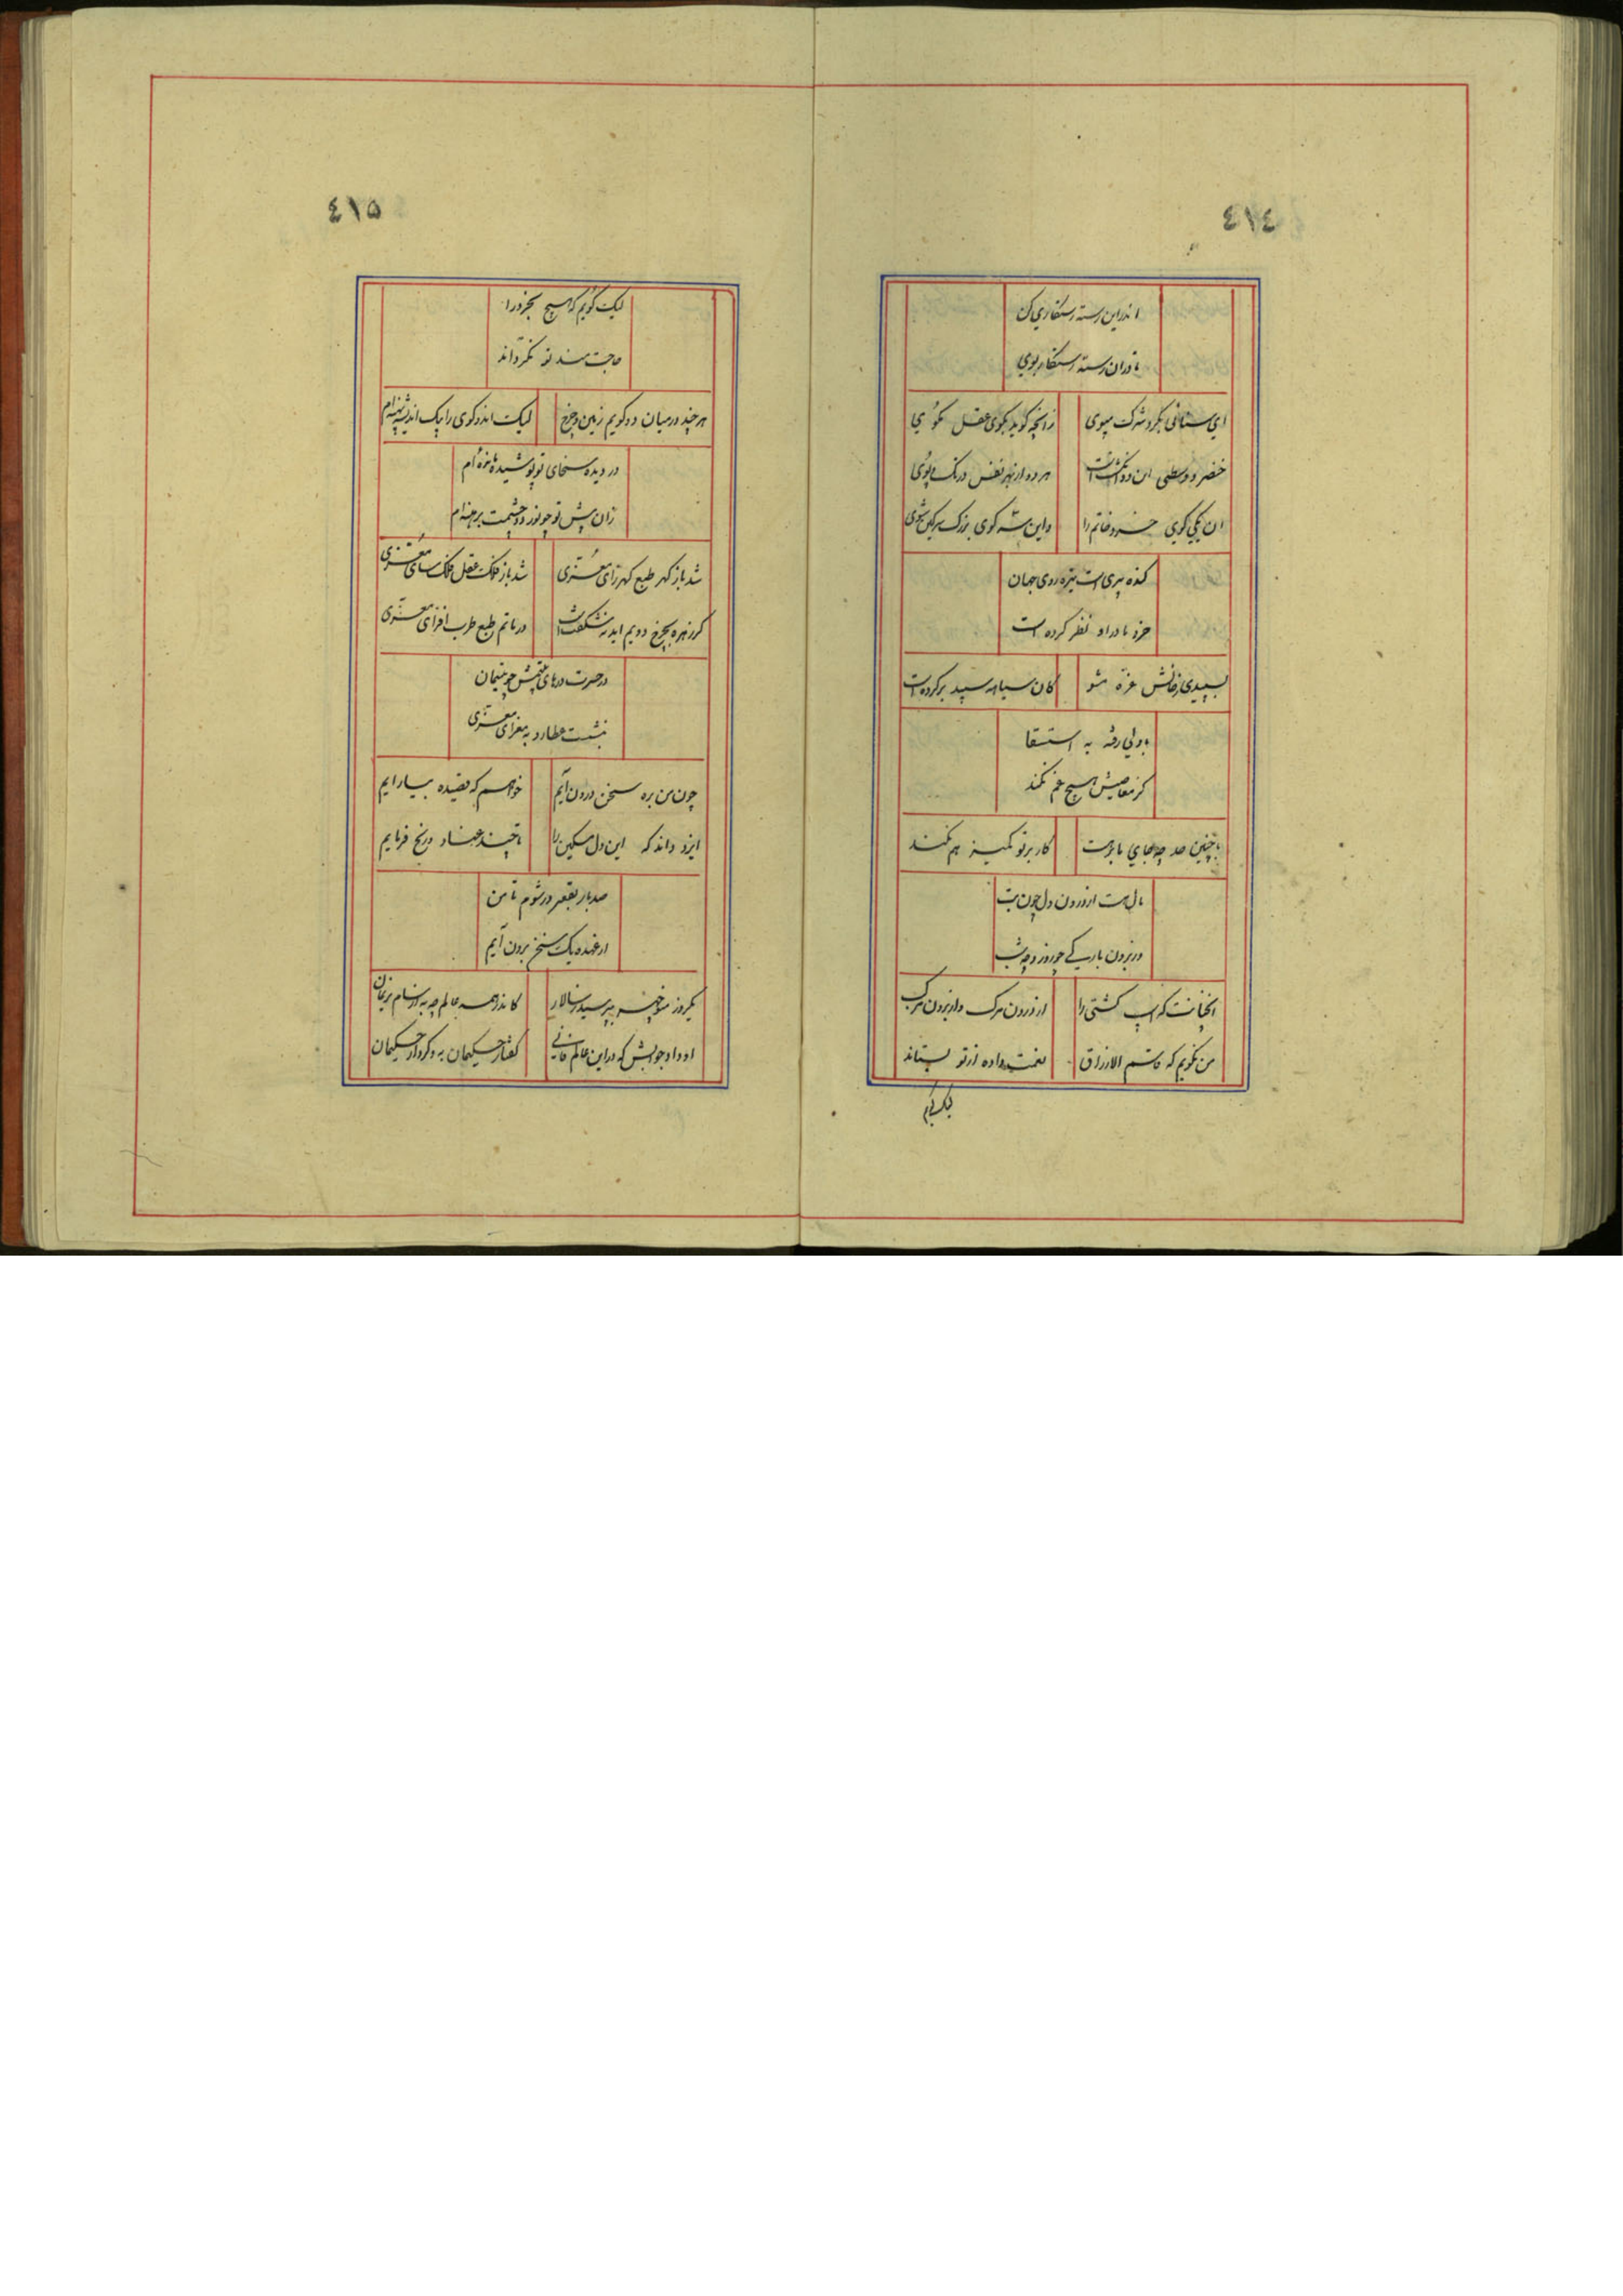 ٤١٤
اندراین رسته رستگاری کن
تا دران رسته رستگار بوی
ای سنائی بگرد شرک مپوی زانچه گوید بگوی عقل بگوی
هر ده از بهر نفس در تک و پوی
ان یکی گوی خسرو خاتم را
کنده پیری است تیزه روی جهان
خرد ما در او نظر کرده است
بسپیدی رخانش غره مشو کان سیاه سپید برکرده است
بولی رفته به استسقا
کز معاصیش هیچ غم نکند
با چنین صد چه بجای باریت کار بر تو کمیز هم نکند
مال هست از درون دل چون
وز برون یاریی چو روز و چو شب
انچنانست که آب کشتی را از درون مرک و از برون مرکب
من نگویم که قاسم الارزاق نعمت داده از تو بستاند
لیک گویم
٤١٥
لیک گویم که هیچ بخرد را
حاجت مند تو نگرداند
هر چند در میان دو گویم زمین و چرخ لیکن اندر گوی را یک اندیشه
در دیده سخای تو پوشیده
زان پیش تو چو نور دو چشمت برهنه ام
شد باز گهر طبع گهر زای معزی شد باز فلک عقل فلک سای معزی
گر زهره بچرخ دویم اید نه شگفت است در ماتم طبع طرب افزای معزی
در حسرت درهای یتیمش چو یتیمان
بنشست عطارد به معزای معزی
چون من بره سخن درون آیم خواهم که قصیده بیارایم
ایزد داند که این دل مسکین را تا چند عناد و رنج فرمایم
صد بار بقعر در شوم تا من
از عهده یک سخن برون آیم
یکروز منوچهر بپرسید ز سالار کاندر همه عالم چه به ای سام نریمان
او داد جوابش که در این عالم فانی گفتار حکیمان به و کردار حکیمان